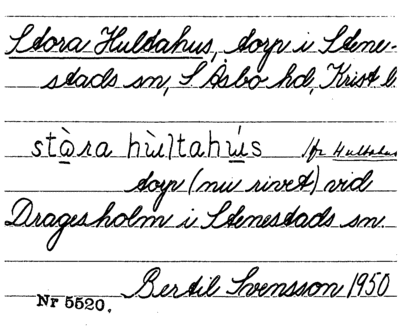 Stora Hultahus, torp i Stene-
stads sn, S Åsbo hd, Krist l.
stò̲ra hùltahú̲s /fr Hultahus
torp (nu rivet) vid
Dragesholm i Stenestads sn
Bertil Svensson 1950
Nr 5520.